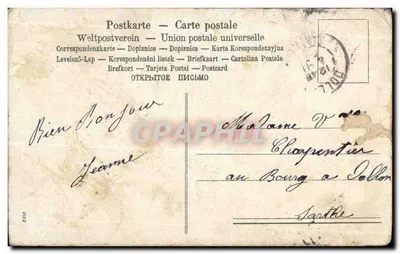 Postkarte – Carte postale
Weltpostverein – Union postale universelle
Correspondenzkarte – Dopisnice – Dopisnica – Karta Korespondenzyjna
Levelező-Lap – Korespondenční lístek – Briefkaart – Cartolina Postale
Brefkort – Tarjeta Postal – Postcard
ОТКРЫТОЕ ПИСЬМО
Bien Bonjour
Jeanne
Madame Vve
Charpentier
au Bourg à Dollon
Sarthe
CPHIL